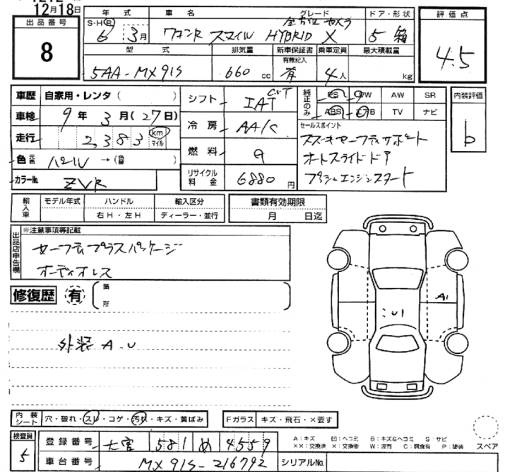 12月18日
出品番号
8
年式
車名
グレード
ドア・形状
評価点
S・H・R
6年 3月
ワゴンR スマイル HYBRID X
全方位カメラ
5 箱
4.5
型式
排気量
新車保証書
乗車定員
最大積載量
有無記入
5AA-MX91S
660 cc
有
4人
kg
車歴 自家用・レンタ
シフト
IAT CVT
純正のみ
PS PW AW SR
ABS TV ナビ
内装評価
b
車検 9年 3月(27日)
走行 2,383 km マイル
冷房 AA/C
セールスポイント
スズキセーフティサポート
オートスライドドア
プッシュエンジンスタート
色 パール →(
燃料 G
カラー№ ZVR
リサイクル料金 6880円
輸入車
モデル年式
ハンドル
輸入区分
右H・左H
ディーラー・並行
書類有効期限
月 日迄
出品店申告欄
※注意事項等記載
セーフティプラスパッケージ
オーディオレス
修復歴 有
箇所
外装 A.U
U1
A1
内装シート
穴・破れ・スレ・コゲ・汚れ・キズ・黄ばみ
Fガラス キズ・飛石・×要す
検査員
5
登録番号
大宮 581 め 4559
A：キズ E：ヘコミ B：キズ&ヘコミ S：サビ
××：交換済 ×：要交換 W：波有 C：腐食有 P：塗装
スペア
車台番号 MX91S-216792
シリアルNo.